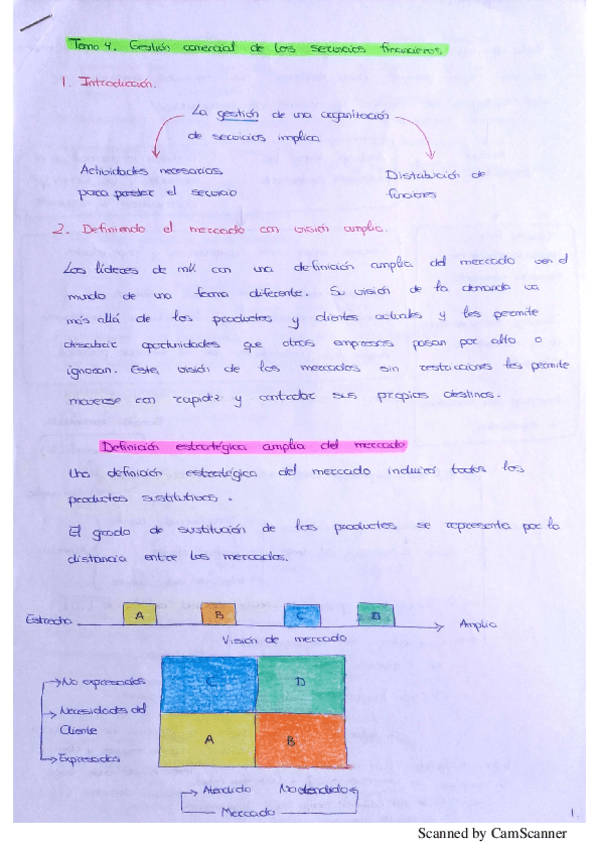 Tema 4. Gestión comercial de los servicios financieros.
1. Introducción.
La gestión de una organización
de servicios implica
Actividades necesarias
para prestar el servicio
Distribución de
funciones
2. Definiendo el mercado con visión amplia.
Los líderes de mk con una definición amplia del mercado ven el
mundo de una forma diferente. Su visión de la demanda va
más allá de los productos y clientes actuales y les permite
descubrir oportunidades que otras empresas pasan por alto o
ignoran. Esta visión de los mercados sin restricciones les permite
moverse con rapidez y controlar sus propios destinos.
Definición estratégica amplia del mercado
Una definición estratégica del mercado incluirá todos los
productos sustitutivos.
El grado de sustitución de los productos se representa por la
distancia entre los mercados.
Estrecha A B C D Amplia
Visión de mercado
No expresadas C D
Necesidades del
Cliente
Expresadas A B
Atendido No atendido
Mercado
1.
Scanned by CamScanner